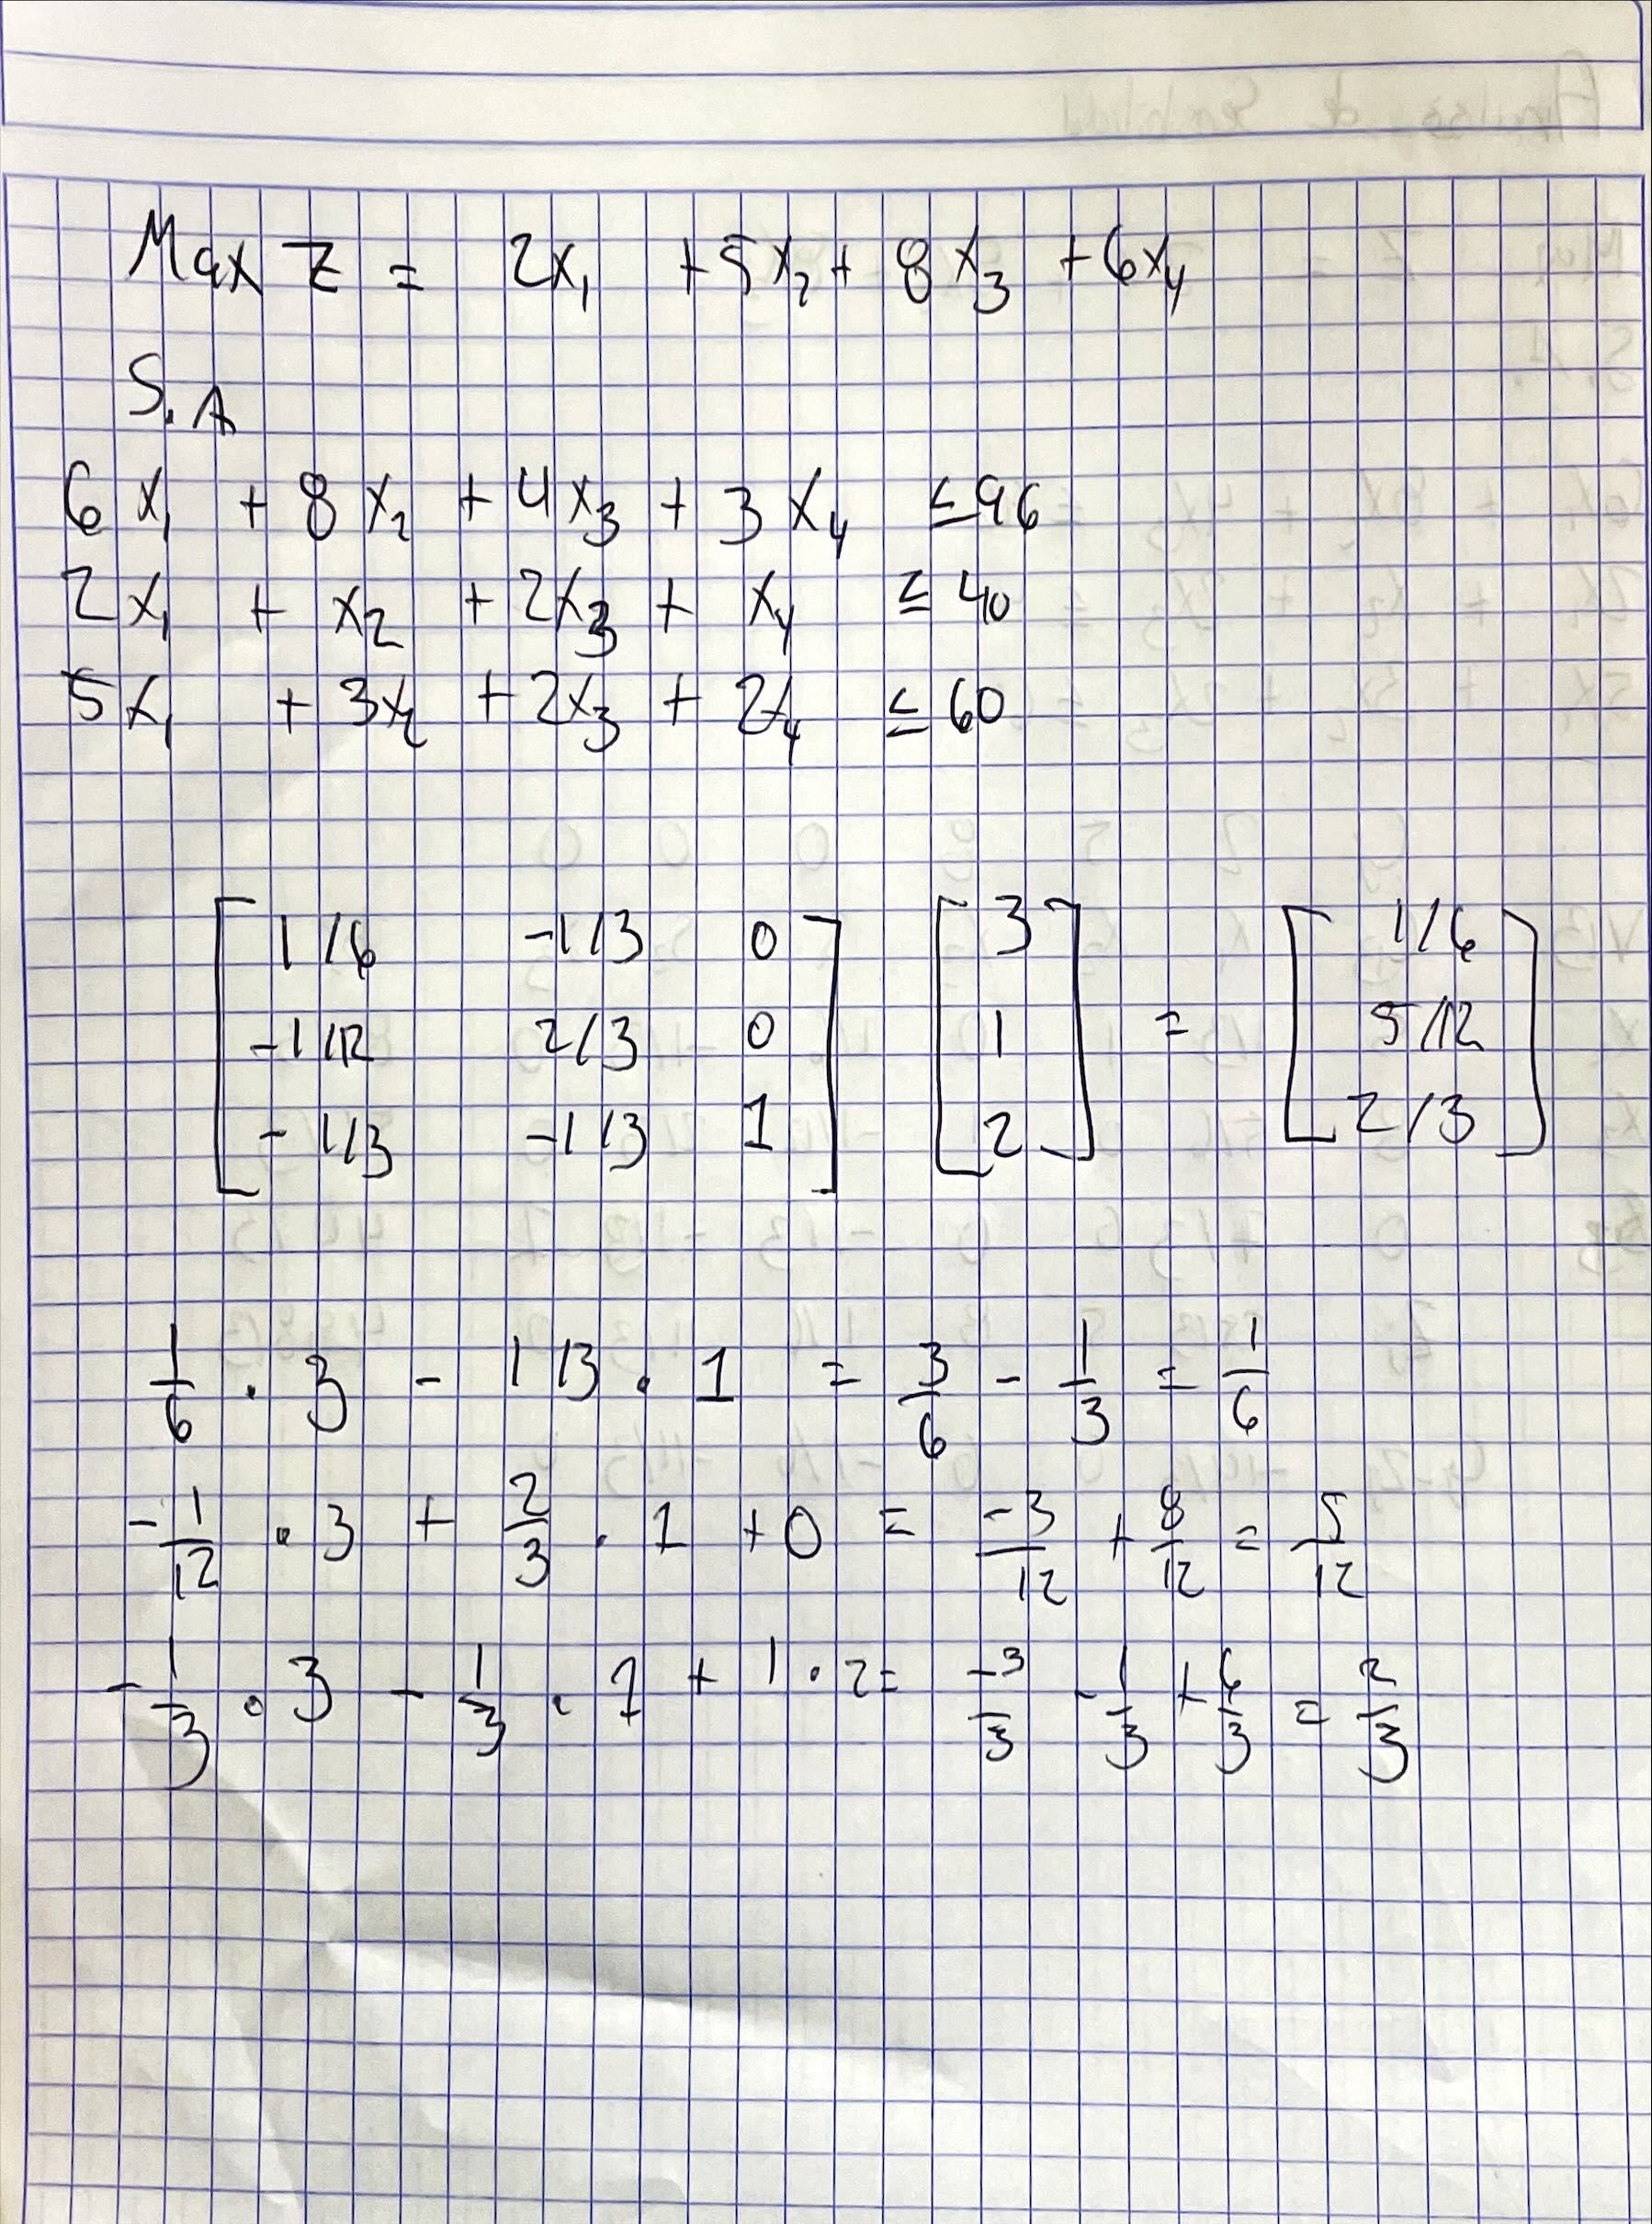 Max Z = 2x₁ + 5x₂ + 8x₃ + 6x₄
S.A
6x₁ + 8x₂ + 4x₃ + 3x₄ ≤ 96
2x₁ + x₂ + 2x₃ + x₄ ≤ 40
5x₁ + 3x₂ + 2x₃ + 2x₄ ≤ 60
[1/6 -1/3 0] [3] [1/6]
[-1/12 2/3 0] [1] = [5/12]
[-1/3 -1/3 1] [2] [2/3]
1/6 · 3 - 1/3 · 1 = 3/6 - 1/3 = 1/6
-1/12 · 3 + 2/3 · 1 + 0 = -3/12 + 8/12 = 5/12
-1/3 · 3 - 1/3 · 1 + 1 · 2 = -3/3 - 1/3 + 6/3 = 2/3